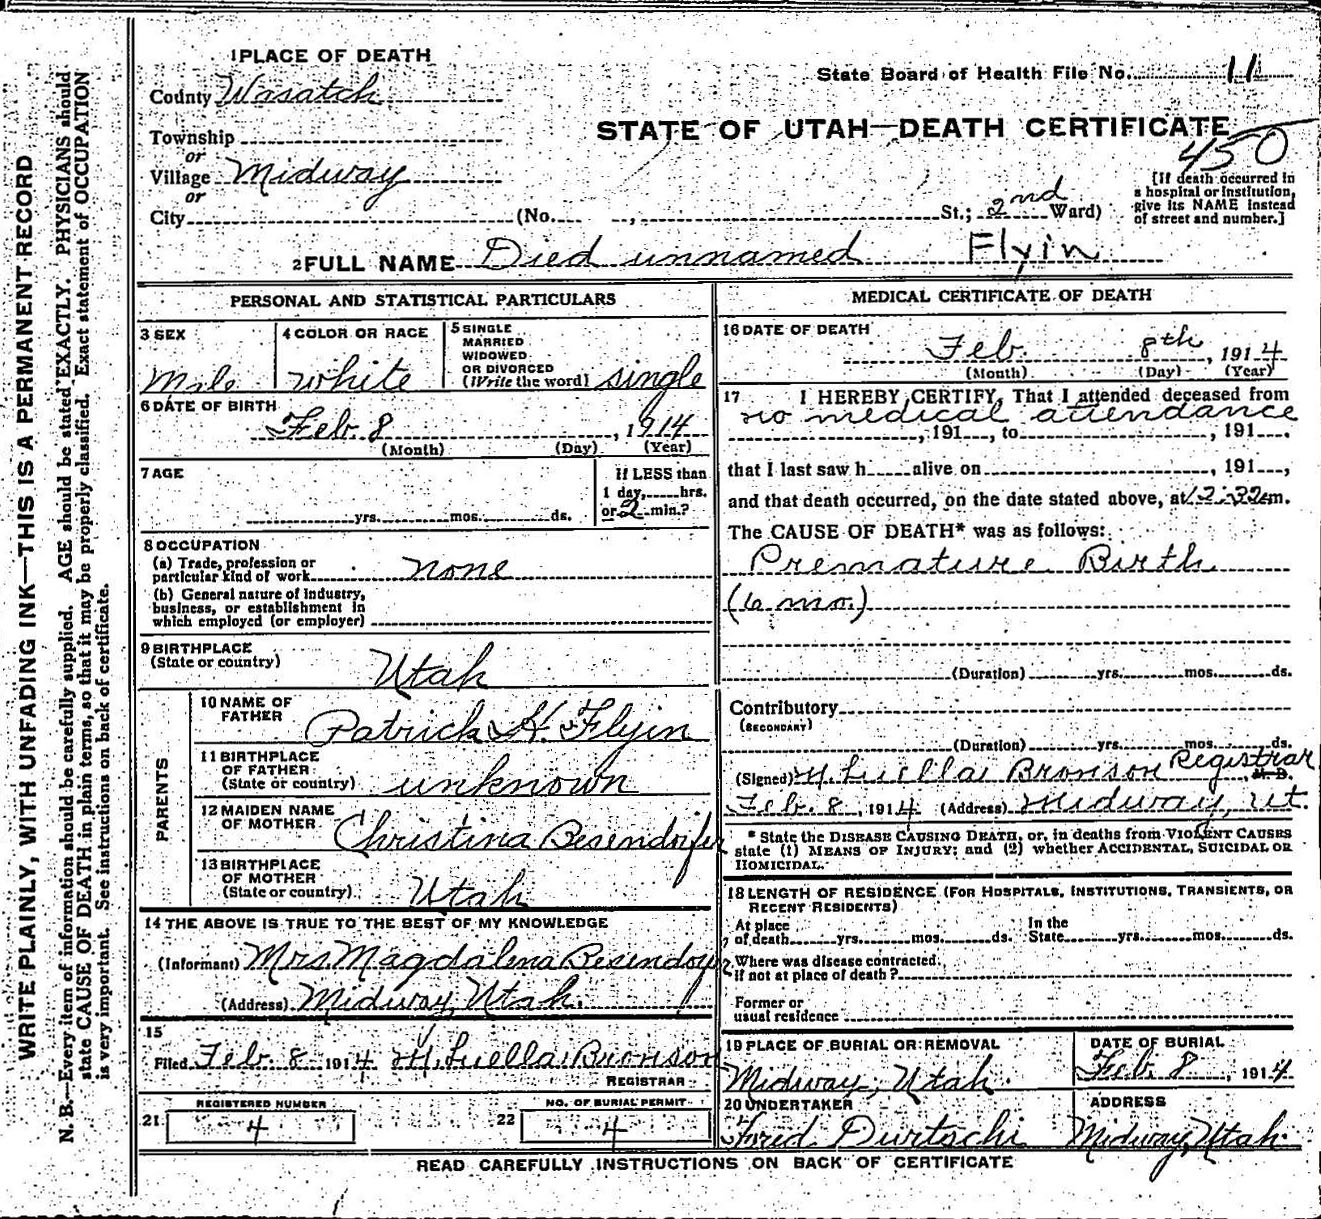 WRITE PLAINLY, WITH UNFADING INK—THIS IS A PERMANENT RECORD
N. B.—Every item of information should be carefully supplied. AGE should be stated EXACTLY. PHYSICIANS should
state CAUSE OF DEATH in plain terms, so that it may be properly classified. Exact statement of OCCUPATION
is very important. See instructions on back of certificate.
1 PLACE OF DEATH
State Board of Health File No. 11
County Wasatch
STATE OF UTAH—DEATH CERTIFICATE
450
Township
or
Village Midway
or
City (No. , St.; 2nd Ward)
[If death occurred in
a hospital or institution,
give its NAME instead
of street and number.]
2 FULL NAME Died unnamed Flyin
PERSONAL AND STATISTICAL PARTICULARS
3 SEX
Male
4 COLOR OR RACE
white
5 SINGLE
MARRIED
WIDOWED
OR DIVORCED
(Write the word) single
6 DATE OF BIRTH
Feb. 8 , 1914
(Month) (Day) (Year)
7 AGE
yrs. mos. ds.
If LESS than
1 day, hrs.
or 2 min.?
8 OCCUPATION
(a) Trade, profession or
particular kind of work none
(b) General nature of industry,
business, or establishment in
which employed (or employer)
9 BIRTHPLACE
(State or country) Utah
PARENTS
10 NAME OF
FATHER Patrick H. Flyin
11 BIRTHPLACE
OF FATHER
(State or country) unknown
12 MAIDEN NAME
OF MOTHER Christina Besendorfer
13 BIRTHPLACE
OF MOTHER
(State or country) Utah
14 THE ABOVE IS TRUE TO THE BEST OF MY KNOWLEDGE
(Informant) Mrs Magdalena Besendorfer
(Address) Midway, Utah.
15
Filed Feb. 8 1914 M. Luella Bronson
REGISTRAR
21 REGISTERED NUMBER
4
22 NO. OF BURIAL PERMIT
4
MEDICAL CERTIFICATE OF DEATH
16 DATE OF DEATH
Feb. 8th , 1914
(Month) (Day) (Year)
17 I HEREBY CERTIFY, That I attended deceased from
no medical attendance
, 191 , to , 191 .
that I last saw h alive on , 191 ,
and that death occurred, on the date stated above, at 12:32 am.
The CAUSE OF DEATH* was as follows:
Premature Birth
(6 mo.)
(Duration) yrs. mos. ds.
Contributory
(SECONDARY)
(Duration) yrs. mos. ds.
(Signed) M. Luella Bronson Registrar, M. D.
Feb. 8, 1914 (Address) Midway, Ut.
* State the DISEASE CAUSING DEATH, or, in deaths from VIOLENT CAUSES
state (1) MEANS OF INJURY; and (2) whether ACCIDENTAL, SUICIDAL OR
HOMICIDAL.
18 LENGTH OF RESIDENCE (FOR HOSPITALS, INSTITUTIONS, TRANSIENTS, OR
RECENT RESIDENTS)
At place
of death yrs. mos. ds.
In the
State yrs. mos. ds.
Where was disease contracted,
if not at place of death?
Former or
usual residence
19 PLACE OF BURIAL OR REMOVAL
Midway, Utah.
DATE OF BURIAL
Feb. 8 , 1914
20 UNDERTAKER
Fred Durtschi
ADDRESS
Midway, Utah.
READ CAREFULLY INSTRUCTIONS ON BACK OF CERTIFICATE